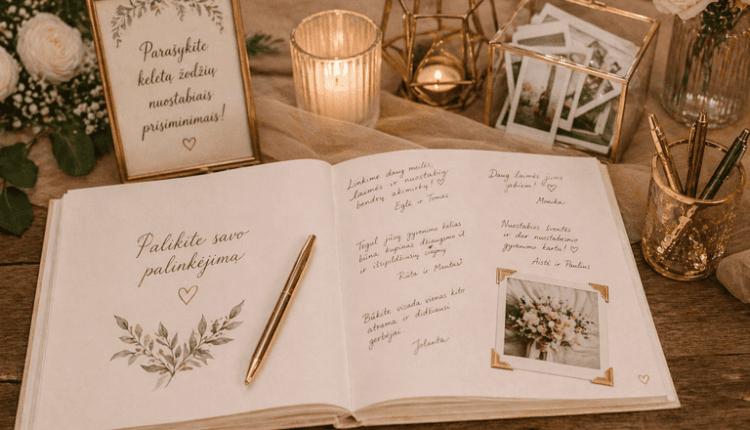 Parašykite
keletą žodžių
nuostabiais
prisiminimais!
Palikite savo
palinkėjimą
Linkime daug meilės,
laimės ir nuostabių
bendrų akimirkų!
Eglė ir Tomas
Tegul jūsų gyvenimo kelias
būna kupinas džiaugsmo
ir išsipildžiusių
Rūta ir Mantas
Būkite visada vienas kito
atrama ir didžiausi
gerbėjai
Jolanta
Daug laimės jums
abiem!
Monika
Nuostabios šventės
ir dar nuostabesnio
gyvenimo kartu!
Aistė ir Paulius